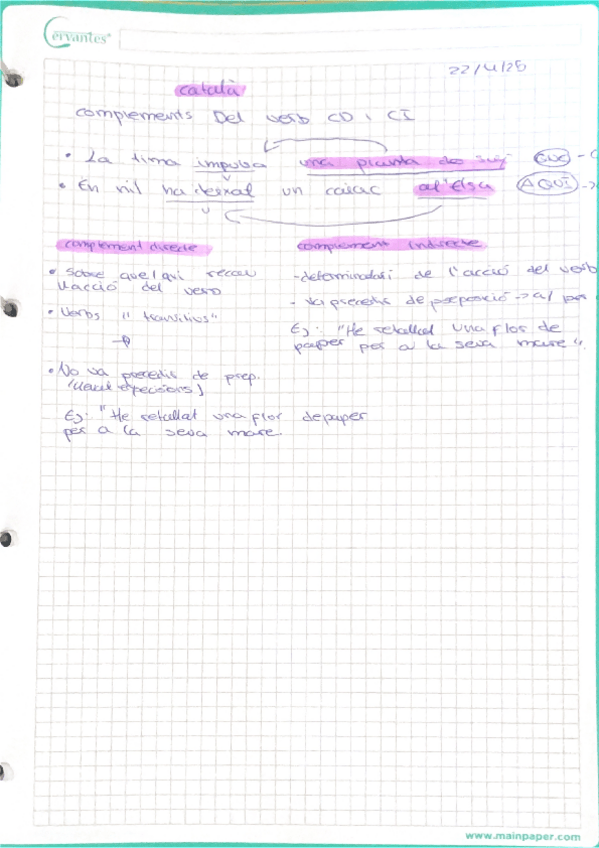 Cervantes
22/4/25
català
complements Del verb CD i CI
• La tima impulsa una planxa de surf QUE - C
• En nil ha deixat un caiac a l'Elsa A QUI ->
complement directe
complement indirecte
• sobre que/qui recau
l'acció del verb
• Verbs "transitius"
• No va precedit de prep.
-determinadari de l'acció del verb
- va precedit de preposició -> a / per
Ej: "He retallat una flor de
paper per a la seva mare".
Ej: "He retallat una flor depaper
per a la seva mare.
www.mainpaper.com